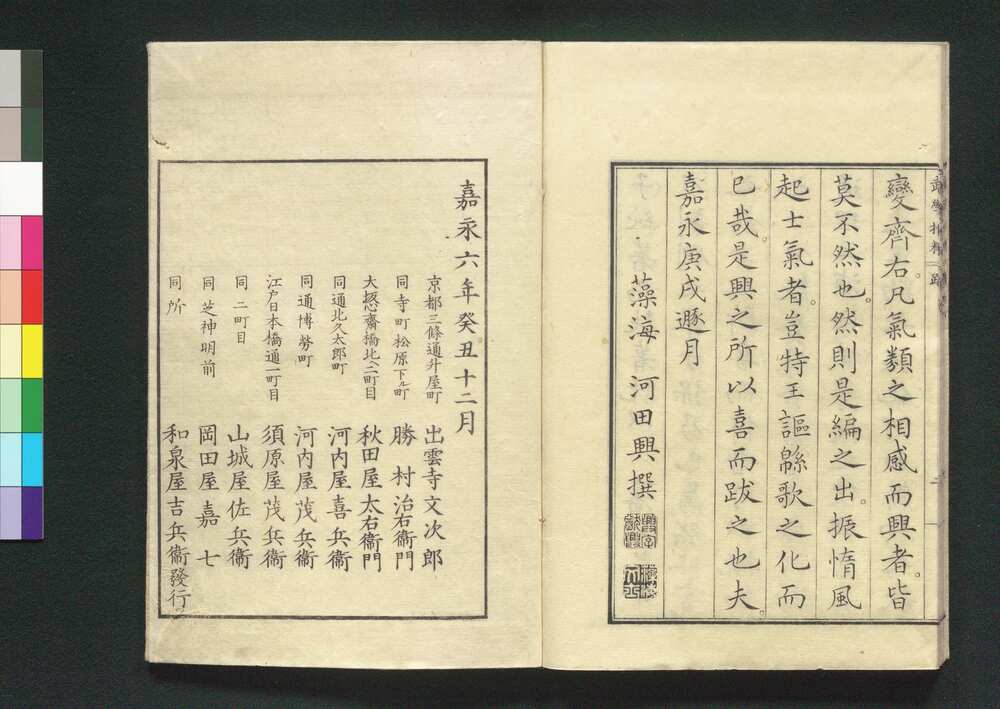 變齊右。凡氣類之相感而興者。皆
莫不然也。然則是編之出。振惰風
起士氣者。豈特王謳緜歌之化而
已哉。是興之所以喜而跋之也夫。
嘉永庚戌遯月
藻海 河田興撰
嘉永六年癸丑十二月
京都三條通升屋町 出雲寺文次郎
同寺町松原下ル町 勝村治右衞門
大坂心齋橋北二町目 秋田屋太右衞門
同通北久太郎町 河内屋喜兵衞
同通博勞町 河内屋茂兵衞
江戸日本橋通一町目 須原屋茂兵衞
同二町目 山城屋佐兵衞
同芝神明前 岡田屋嘉七
同所 和泉屋吉兵衞發行